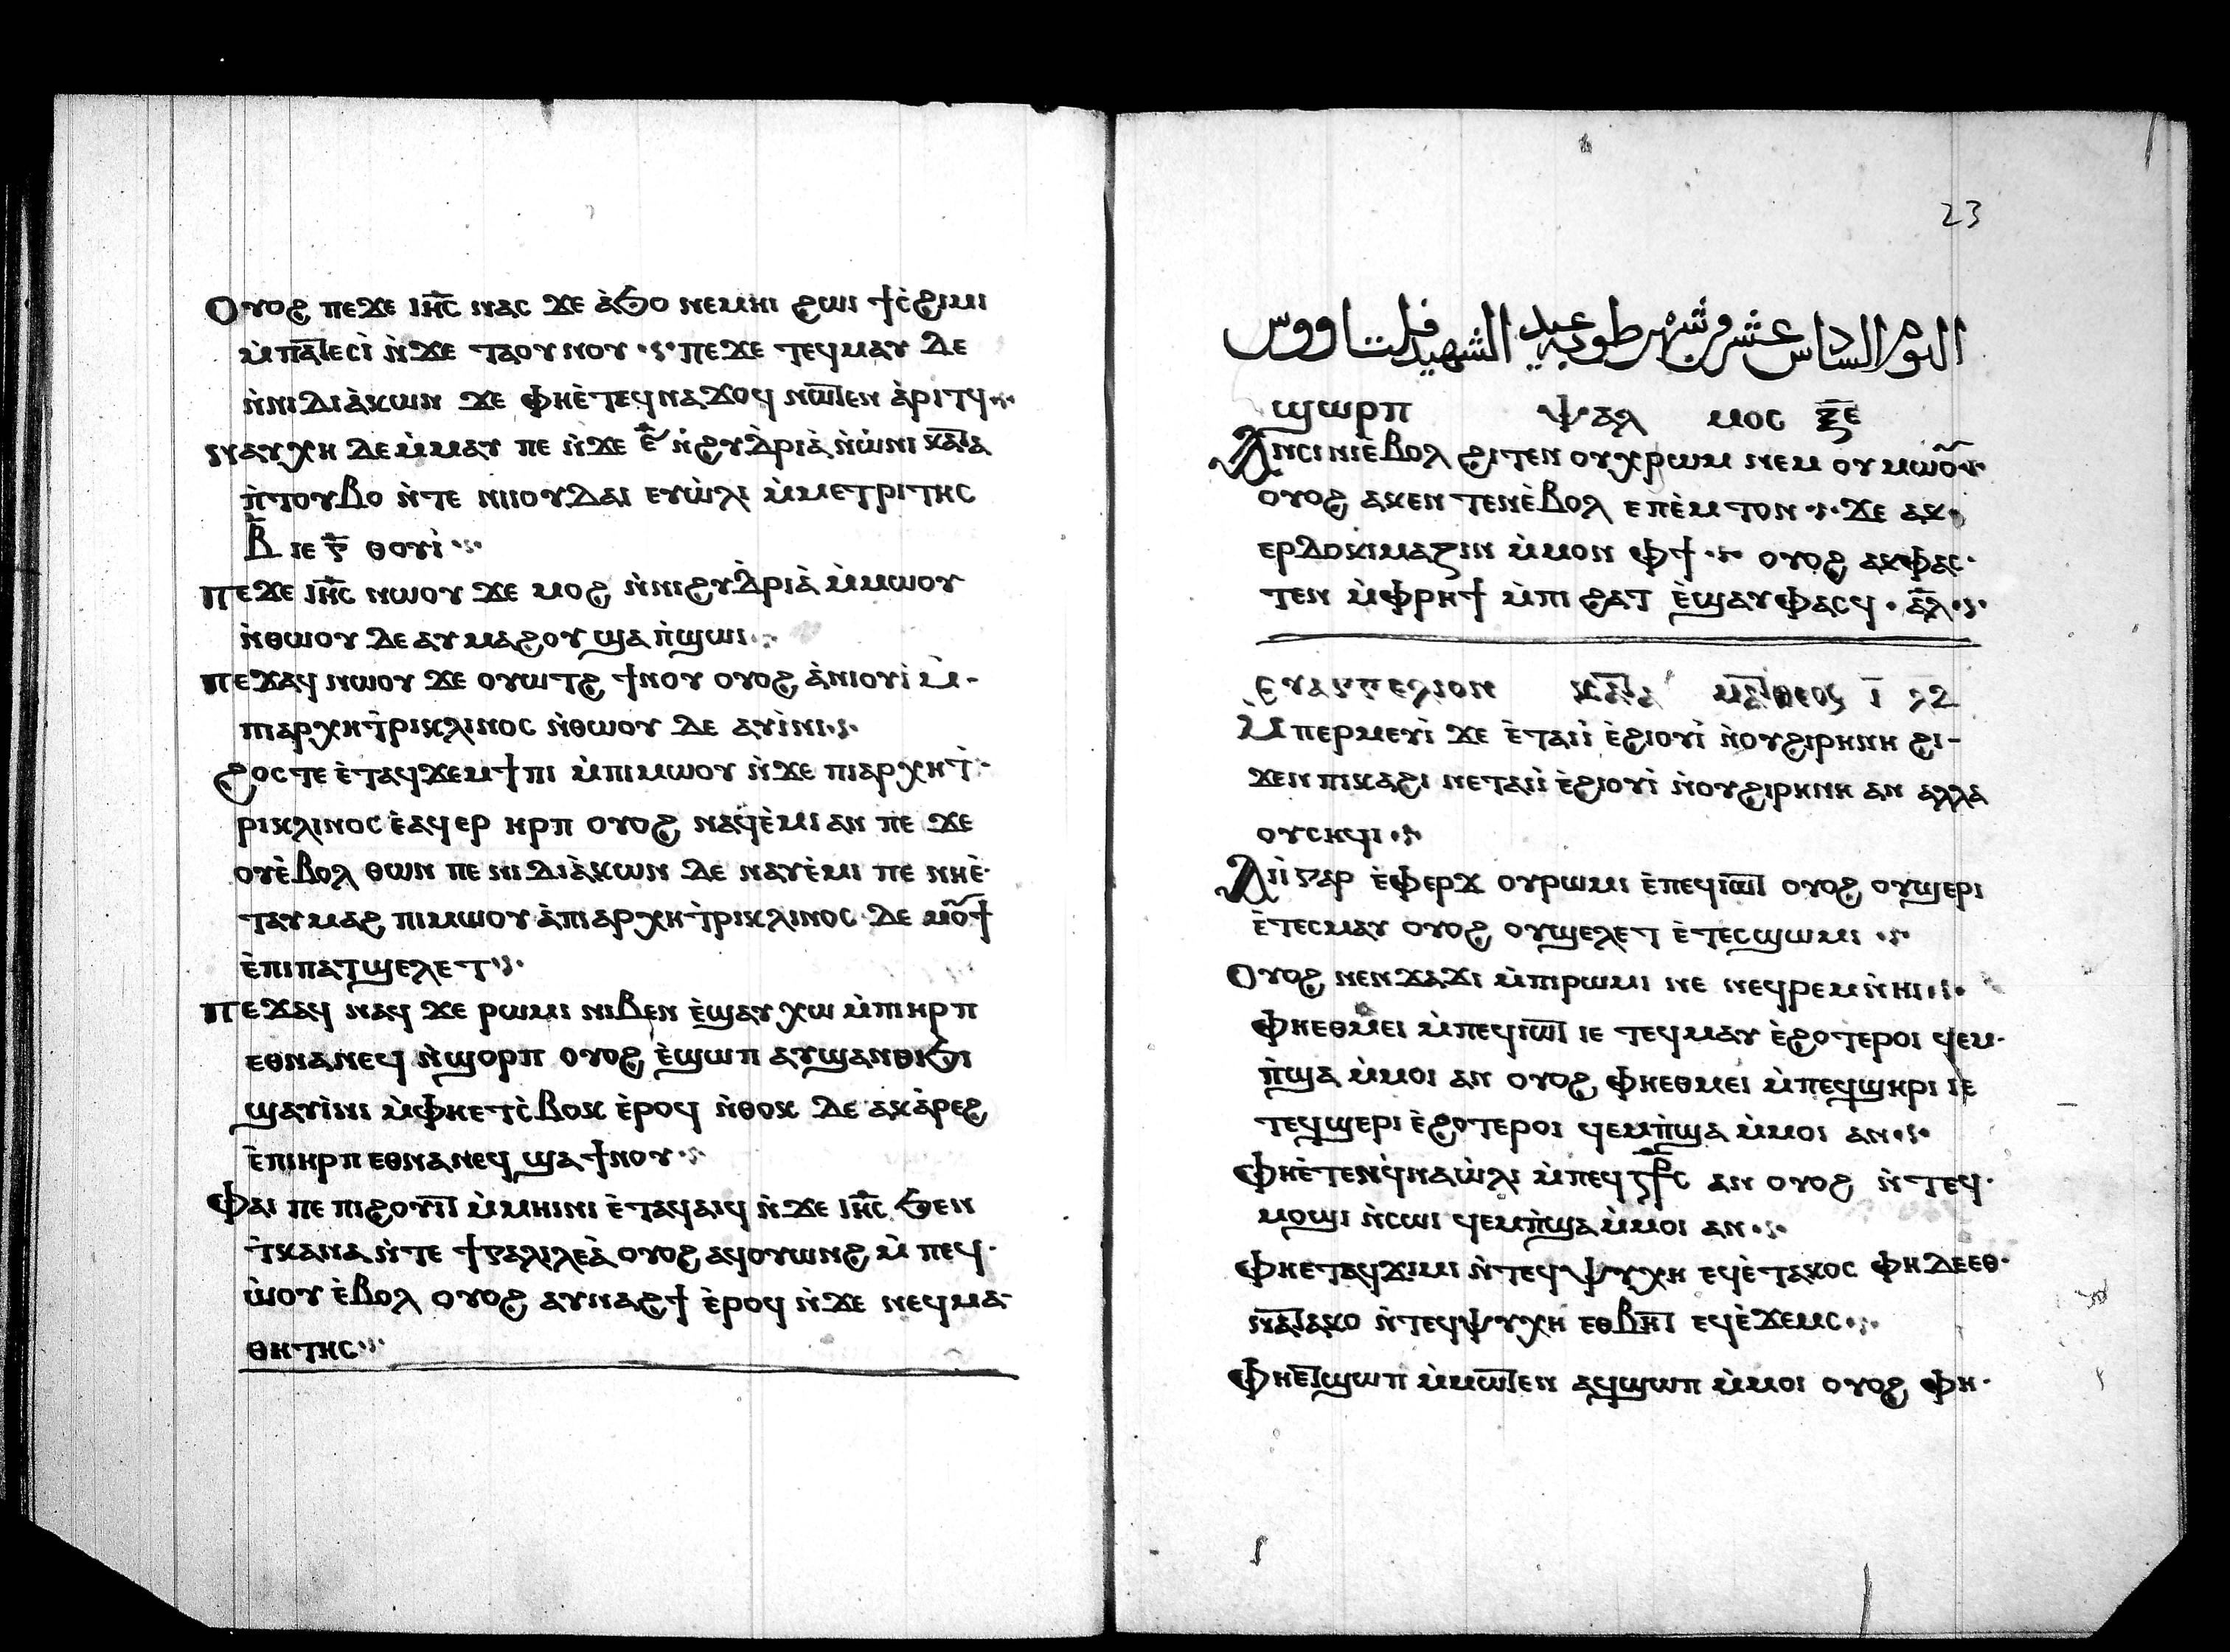 Ⲟⲩⲟϩ ⲡⲉϫⲉ ⲓⲏ̅ⲥ̅ ⲛⲁⲥ ϫⲉ ⲁ̀ϧⲟ ⲛⲉⲙⲏⲓ ϩⲱⲓ ϯⲥ̀ϩⲓⲙⲓ
ⲙ̀ⲡⲁ̅ⲧ̅ⲉⲥⲓ̀ ⲛ̀ϫⲉ ⲧⲁⲟⲩⲛⲟⲩ ⲡⲉϫⲉ ⲧⲉϥⲙⲁⲩ ⲇⲉ
ⲛ̀ⲛⲓⲇⲓⲁ̀ⲕⲱⲛ ϫⲉ ⲫⲏⲉ̀ⲧⲉϥⲛⲁϫⲟϥ ⲛⲱ̅ⲧ̅ⲉⲛ ⲁ̀ⲣⲓⲧϥ
ⲛⲁⲩⲭⲏ ⲇⲉ ⲙ̀ⲙⲁⲩ ⲡⲉ ⲛ̀ϫⲉ ⲋ̅ ⲛ̀ϩⲩⲇ̀ⲣⲓⲁ̀ ⲛ̀ⲱ̀ⲛⲓ ⲕⲁ̅ⲧ̅ⲁ
ⲡ̀ⲧⲟⲩⲃⲟ ⲛ̀ⲧⲉ ⲛⲓⲓⲟⲩⲇⲁⲓ ⲉⲩⲱ̀ⲗⲓ ⲙ̀ⲙⲉⲧⲣⲓⲧⲏⲥ
ⲃ̅ ⲓⲉ ⲅ̅ ⲑⲟⲩⲓ̀
ⲡⲉϫⲉ ⲓⲏ̅ⲥ̅ ⲛⲱⲟⲩ ϫⲉ ⲙⲟϩ ⲛ̀ⲛⲓϩⲩⲇ̀ⲣⲓⲁ̀ ⲙ̀ⲙⲱⲟⲩ
ⲛ̀ⲑⲱⲟⲩ ⲇⲉ ⲁⲩⲙⲁϩⲟⲩ ϣⲁ ⲡ̀ϣⲱⲓ
ⲡⲉϫⲁϥ ⲛⲱⲟⲩ ϫⲉ ⲟⲩⲱⲧϩ ϯⲛⲟⲩ ⲟⲩⲟϩ ⲁ̀ⲛⲓⲟⲩⲓ̀ ⲙ̀-
ⲡⲓⲁⲣⲭⲏⲧ̀ⲣⲓⲕⲗⲓⲛⲟⲥ ⲛ̀ⲑⲱⲟⲩ ⲇⲉ ⲁⲩⲓ̀ⲛⲓ
ϩⲟⲥⲧⲉ ⲉ̀ⲧⲁϥϫⲉⲙϯⲡⲓ ⲙ̀ⲡⲓⲙⲱⲟⲩ ⲛ̀ϫⲉ ⲡⲓⲁⲣⲭⲏⲧ̀-
ⲣⲓⲕⲗⲓⲛⲟⲥ ⲉ̀ⲁϥⲉⲣ ⲏⲣⲡ ⲟⲩⲟϩ ⲛⲁϥⲉ̀ⲙⲓ ⲁⲛ ⲡⲉ ϫⲉ
ⲟⲩⲉ̀ⲃⲟⲗ ⲑⲱⲛ ⲡⲉ ⲛⲓⲇⲓⲁ̀ⲕⲱⲛ ⲇⲉ ⲛⲁⲩⲉ̀ⲙⲓ ⲡⲉ ⲛⲏⲉ̀-
ⲧⲁⲩⲙⲁϩ ⲡⲓⲙⲱⲟⲩ ⲁ̀ⲡⲓⲁⲣⲭⲏⲧ̀ⲣⲓⲕⲗⲓⲛⲟⲥ ⲇⲉ ⲙⲟ̅ϯ
ⲉ̀ⲡⲓⲡⲁⲧϣⲉⲗⲉⲧ
ⲡⲉϫⲁϥ ⲛⲁϥ ϫⲉ ⲣⲱⲙⲓ ⲛⲓⲃⲉⲛ ⲉ̀ϣⲁⲩⲭⲱ ⲙ̀ⲡⲓⲏⲣⲡ
ⲉⲑⲛⲁⲛⲉϥ ⲛ̀ϣⲟⲣⲡ ⲟⲩⲟϩ ⲉ̀ϣⲱⲡ ⲁⲩϣⲁⲛⲑⲓϧⲓ
ϣⲁⲩⲓ̀ⲛⲓ ⲙ̀ⲫⲏⲉⲧⲥ̀ⲃⲟⲕ ⲉ̀ⲣⲟϥ ⲛ̀ⲑⲟⲕ ⲇⲉ ⲁⲕⲁ̀ⲣⲉϩ
ⲉ̀ⲡⲓⲏⲣⲡ ⲉⲑⲛⲁⲛⲉϥ ϣⲁ ϯⲛⲟⲩ
ⲫⲁⲓ ⲡⲉ ⲡⲓϩⲟⲩⲓ̅ⲧ̅ ⲙ̀ⲙⲏⲓⲛⲓ ⲉ̀ⲧⲁϥⲁⲓϥ ⲛ̀ϫⲉ ⲓⲏ̅ⲥ̅ ϧⲉⲛ
ⲧ̀ⲕⲁⲛⲁ ⲛ̀ⲧⲉ ϯⲅⲁⲗⲓⲗⲉⲁ̀ ⲟⲩⲟϩ ⲁϥⲟⲩⲱⲛϩ ⲙ̀ⲡⲉϥ-
ⲱ̀ⲟⲩ ⲉ̀ⲃⲟⲗ ⲟⲩⲟϩ ⲁⲩⲛⲁϩϯ ⲉ̀ⲣⲟϥ ⲛ̀ϫⲉ ⲛⲉϥⲙⲁ-
ⲑⲏⲧⲏⲥ
23
اليوم السادس عشر من شهر طوبه عيد الشهيد فيلتاووس
ϣⲱⲣⲡ ⲯⲁⲗ ⲙⲟⲥ ⲝ̅ⲉ̅
ⲁⲛⲥⲓⲛⲓⲉ̀ⲃⲟⲗ ϩⲓⲧⲉⲛ ⲟⲩⲭⲣⲱⲙ ⲛⲉⲙ ⲟⲩⲙⲱⲟ̅ⲩ
ⲟⲩⲟϩ ⲁⲕⲉⲛⲧⲉⲛⲉ̀ⲃⲟⲗ ⲉⲡⲉ̀ⲙⲧⲟⲛ ϫⲉ ⲁⲕ-
ⲉⲣⲇⲟⲕⲓⲙⲁⲍⲓⲛ ⲙ̀ⲙⲟⲛ ⲫϯ ⲟⲩⲟϩ ⲁⲕⲫⲁⲥ-
ⲧⲉⲛ ⲙ̀ⲫⲣⲏϯ ⲙ̀ⲡⲓϩⲁⲧ ⲉ̀ϣⲁⲩⲫⲁⲥϥ ⲁ̅ⲗ̅
ⲉⲩⲁⲅⲅⲉⲗⲓⲟⲛ ⲕⲁ̅ⲧ̅ⲁ ⲙⲁ̅ⲧ̅ⲑⲉⲟⲥ ⲓ̅ ⲗⲇ
ⲙ̀ⲡⲉⲣⲙⲉⲩⲓ̀ ϫⲉ ⲉ̀ⲧⲁⲓⲓ̀ ⲉ̀ϩⲓⲟⲩⲓ̀ ⲛ̀ⲟⲩϩⲓⲣⲏⲛⲏ ϩⲓ-
ϫⲉⲛ ⲡⲓⲕⲁϩⲓ ⲛⲉⲧⲁⲓⲓ̀ ⲉ̀ϩⲓⲟⲩⲓ̀ ⲛ̀ⲟⲩϩⲓⲣⲏⲛⲏ ⲁⲛ ⲁⲗⲗⲁ
ⲟⲩⲥⲏϥⲓ
ⲁⲓⲓ̀ ⲅⲁⲣ ⲉ̀ⲫⲉⲣϫ ⲟⲩⲣⲱⲙⲓ ⲉ̀ⲡⲉϥⲓⲱ̅ⲧ̅ ⲟⲩⲟϩ ⲟⲩϣⲉⲣⲓ
ⲉ̀ⲧⲉⲥⲙⲁⲩ ⲟⲩⲟϩ ⲟⲩϣⲉⲗⲉⲧ ⲉ̀ⲧⲉⲥϣⲱⲙⲓ
Ⲟⲩⲟϩ ⲛⲉⲛϫⲁϫⲓ ⲙ̀ⲡⲓⲣⲱⲙⲓ ⲛⲉ ⲛⲉϥⲣⲉⲙⲛ̀ⲏⲓ
ⲫⲏⲉⲑⲙⲉⲓ ⲙ̀ⲡⲉϥⲓⲱ̅ⲧ̅ ⲓⲉ ⲧⲉϥⲙⲁⲩ ⲉ̀ϩⲟⲧⲉⲣⲟⲓ ϥⲉⲙ-
ⲡ̀ϣⲁ ⲙ̀ⲙⲟⲓ ⲁⲛ ⲟⲩⲟϩ ⲫⲏⲉⲑⲙⲉⲓ ⲙ̀ⲡⲉϥϣⲏⲣⲓ ⲓⲉ
ⲧⲉϥϣⲉⲣⲓ ⲉ̀ϩⲟⲧⲉⲣⲟⲓ ϥⲉⲙⲡ̀ϣⲁ ⲙ̀ⲙⲟⲓ ⲁⲛ
ⲫⲏⲉ̀ⲧⲉⲛϥ̀ⲛⲁⲱ̀ⲗⲓ ⲙ̀ⲡⲉϥⲥ̅ⳁ̅ⲥ ⲁⲛ ⲟⲩⲟϩ ⲛ̀ⲧⲉϥ-
ⲙⲟϣⲓ ⲛ̀ⲥⲱⲓ ϥⲉⲙⲡ̀ϣⲁ ⲙ̀ⲙⲟⲓ ⲁⲛ
ⲫⲏⲉⲧⲁϥϫⲓⲙⲓ ⲛ̀ⲧⲉϥⲯⲩⲭⲏ ⲉϥⲉ̀ⲧⲁⲕⲟⲥ ⲫⲏ ⲇⲉ ⲉⲑ-
ⲛⲁ̅ⲧ̅ⲁⲕⲟ ⲛ̀ⲧⲉϥⲯⲩⲭⲏ ⲉⲑⲃⲏ̅ⲧ̅ ⲉϥⲉ̀ϫⲉⲙⲥ
ⲫⲏⲉ̅ⲧ̅ϣⲱⲡ ⲙ̀ⲙⲱ̅ⲧ̅ⲉⲛ ⲁϥϣⲱⲡ ⲙ̀ⲙⲟⲓ ⲟⲩⲟϩ ⲫⲏ-